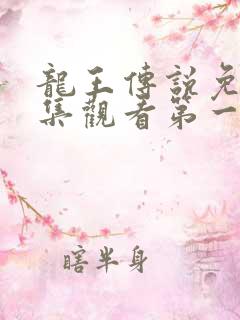 龍王傳說免
集觀看第一
瞎半身